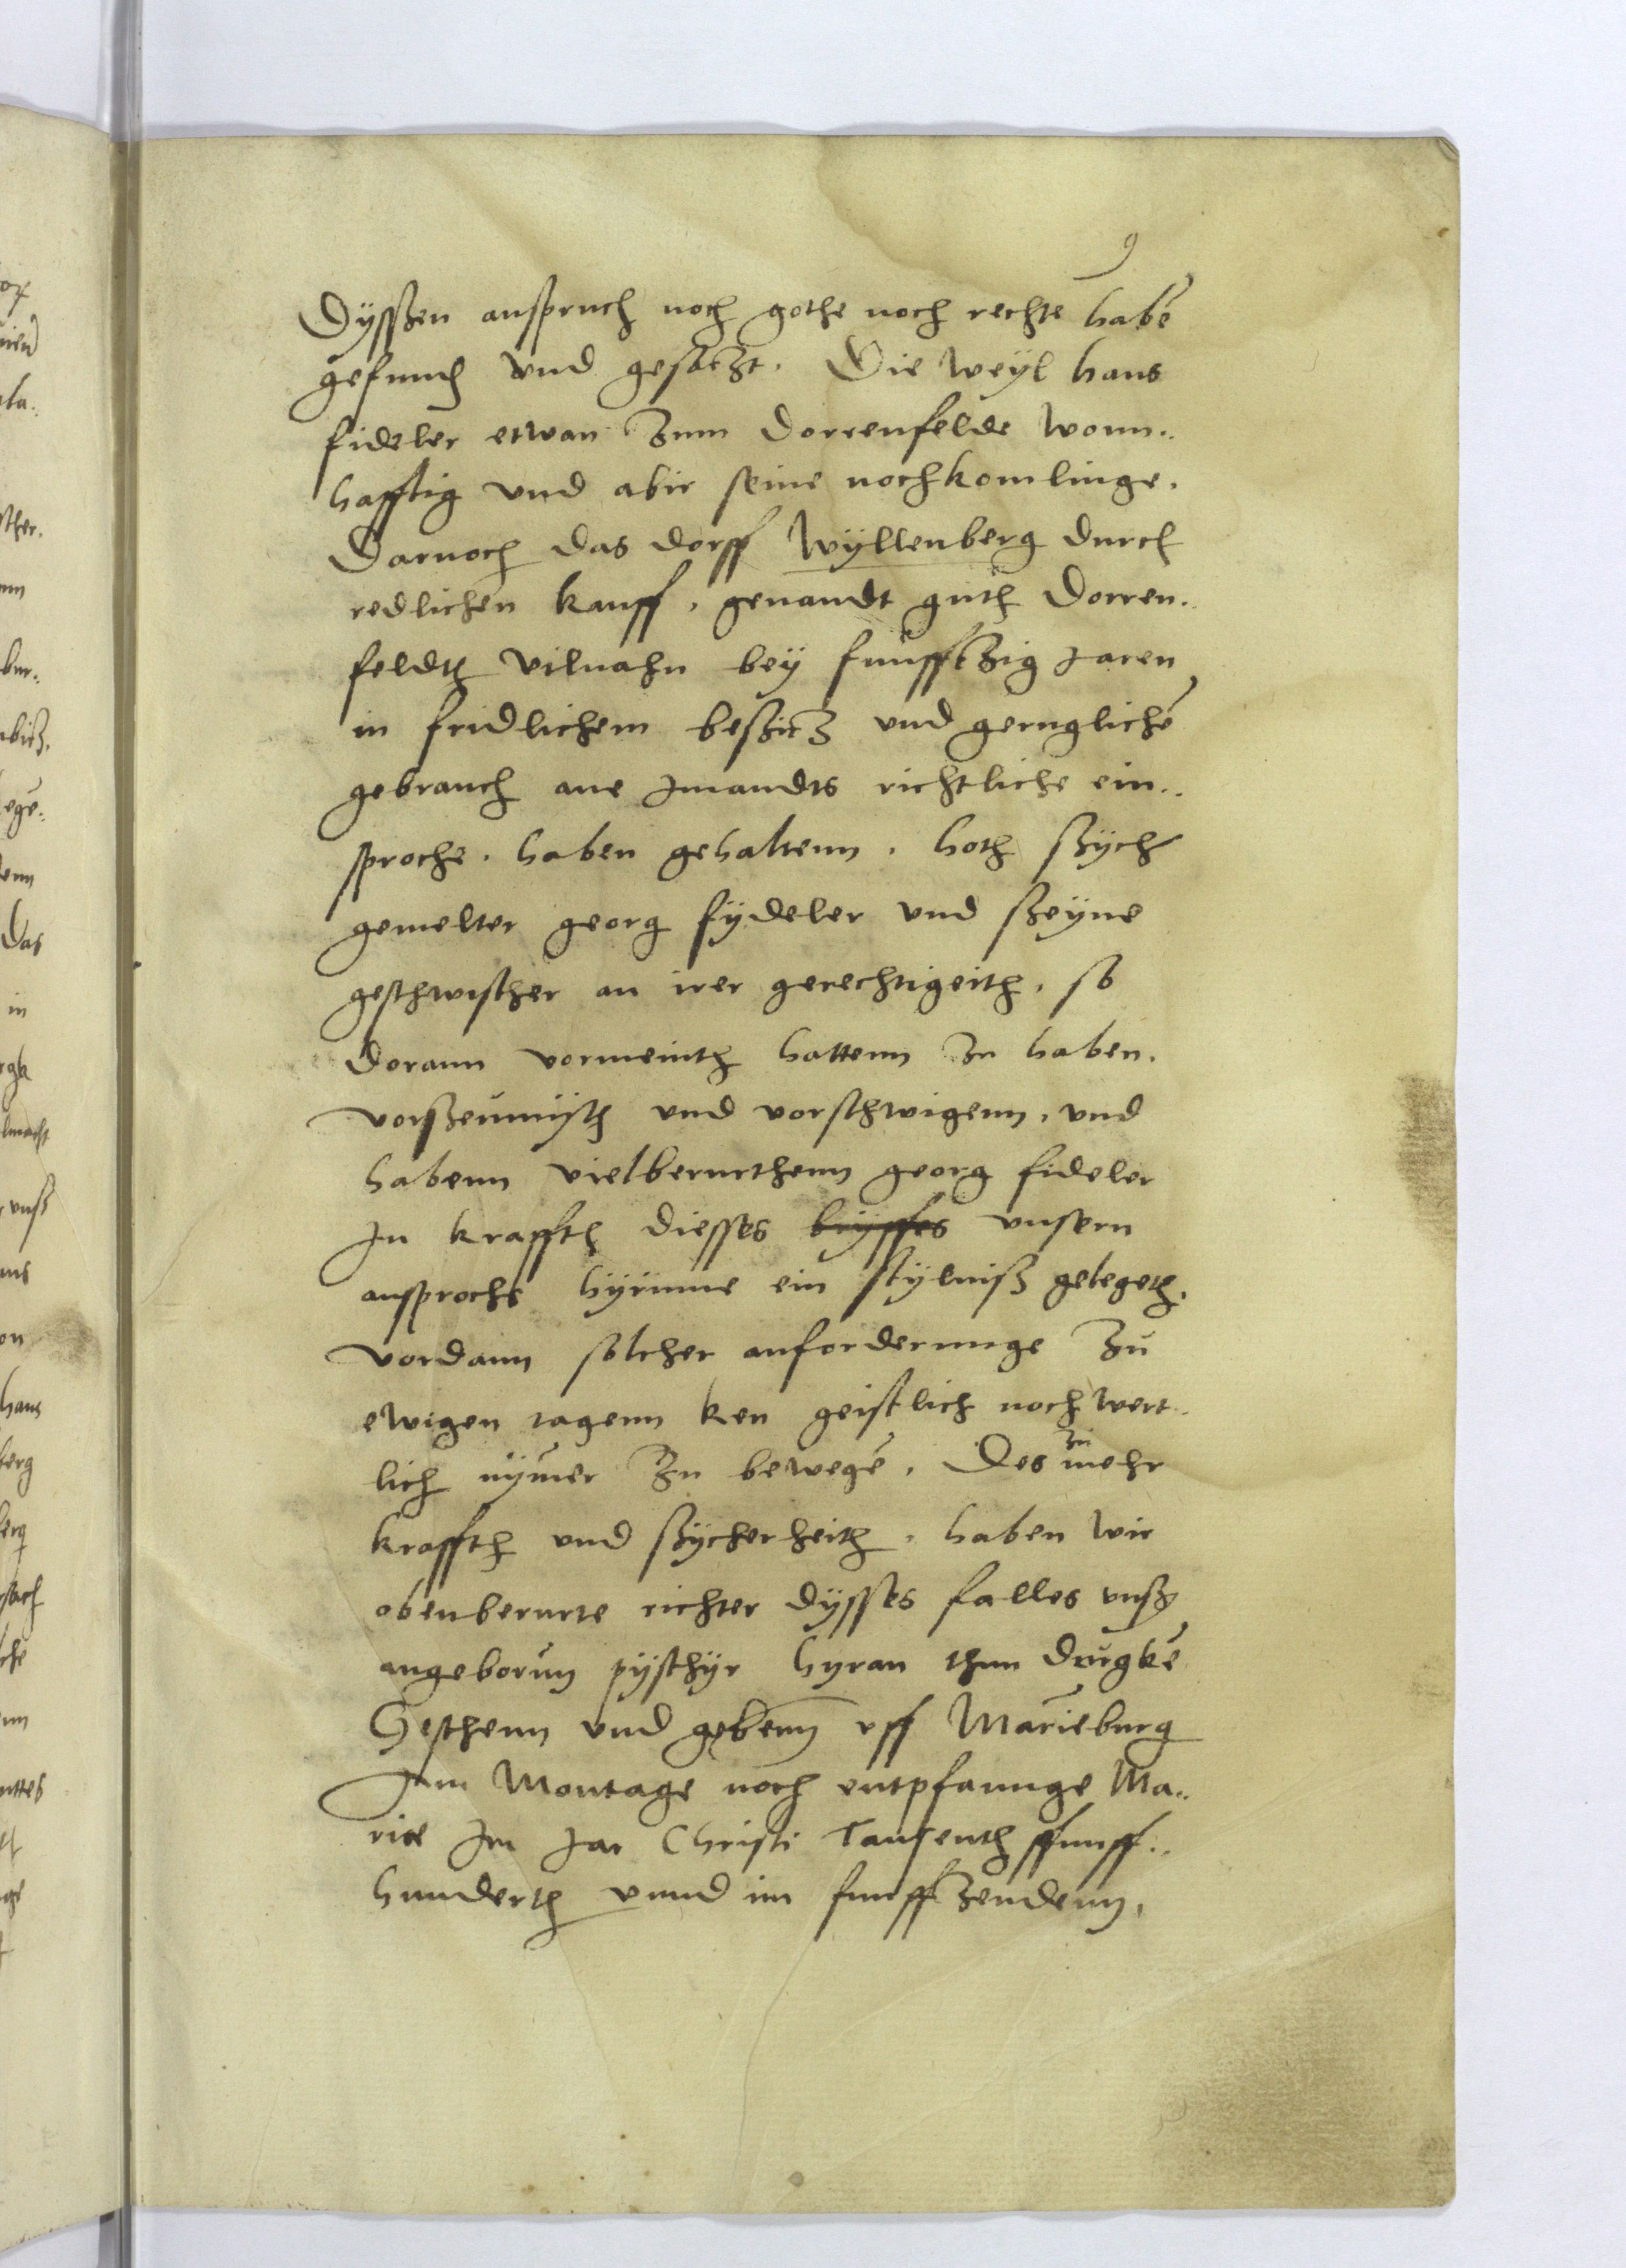 9
Dysßen anspruch noch gothe noch rechte habē
gefundē vnd gesatzt. Die weyl hans
fideler etwan zum dorrenfelde wonn..
hafftig vnd abir seine nochkomlinge.
Darnoch das dorff Wyllenberg durch
redlichen kauff, genandt guth dorren..
feldth vilnahn bey funfftzig Jaren
in fridlichem beßitz vnd geruglichē
gebrauch ane Jmandts richtliche ein..
sproche. haben gehaltenn. hoth ßych
gemelter georg fydeler vnd ßeyne
geschwister an irer gerechtigeith, so
dorann vormeinth hattenn zu haben.
vorßeumyth vnd vorschwigenn, vnd
habenn vielberurthenn georg fideler
Jn kraffth diesses bryffes vnsern
ansprochs hyrinne ein stylniß gelegeth.
vordann solcher anforderunge zu
ewigen tagenn ken geistlich noch wert..
lich nymer zu bewegē. Des zu mehr
kraffth vnd ßycherheith. haben wir
obenberurte richter dysses falles vnß
angeborun pyschyr hyran thun drugkē
Geschenn vnd gebenn vff Marieburg
Jm Montage noch entpfaunge Ma..
rie Jm Jar Christi Tausenth ffunff..
hunderth vnnd im funfftzendenn,